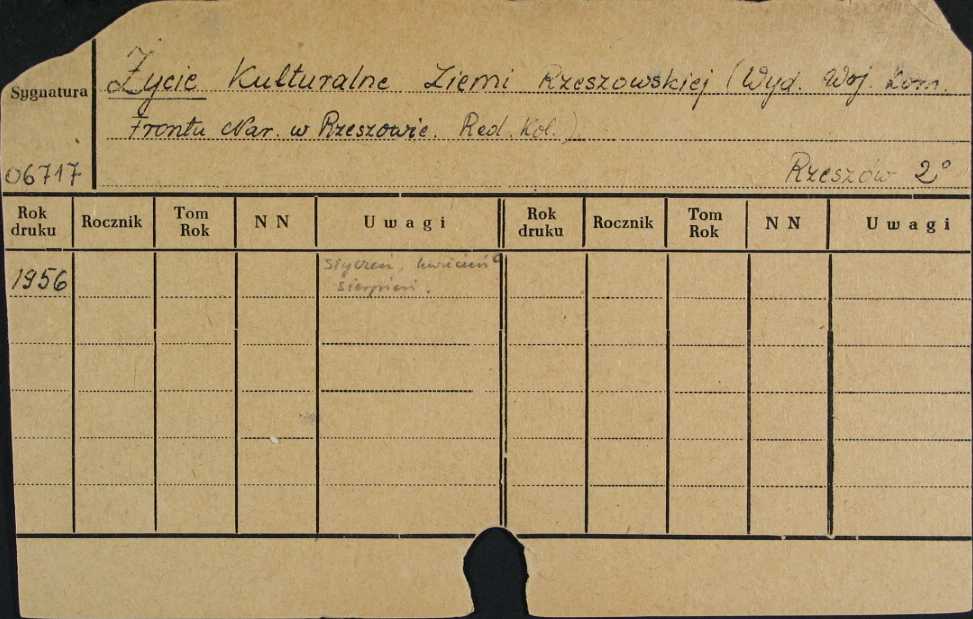 Życie Kulturalne Ziemi Rzeszowskiej (Wyd. Woj. Kom.
Sygnatura
Frontu Nar. w Rzeszowie. Red. Kol.)
06717
Rzeszów 2°
Rok druku Rocznik Tom Rok N N Uwagi Rok druku Rocznik Tom Rok N N Uwagi
1956 styczeń, kwiecień
sierpień.